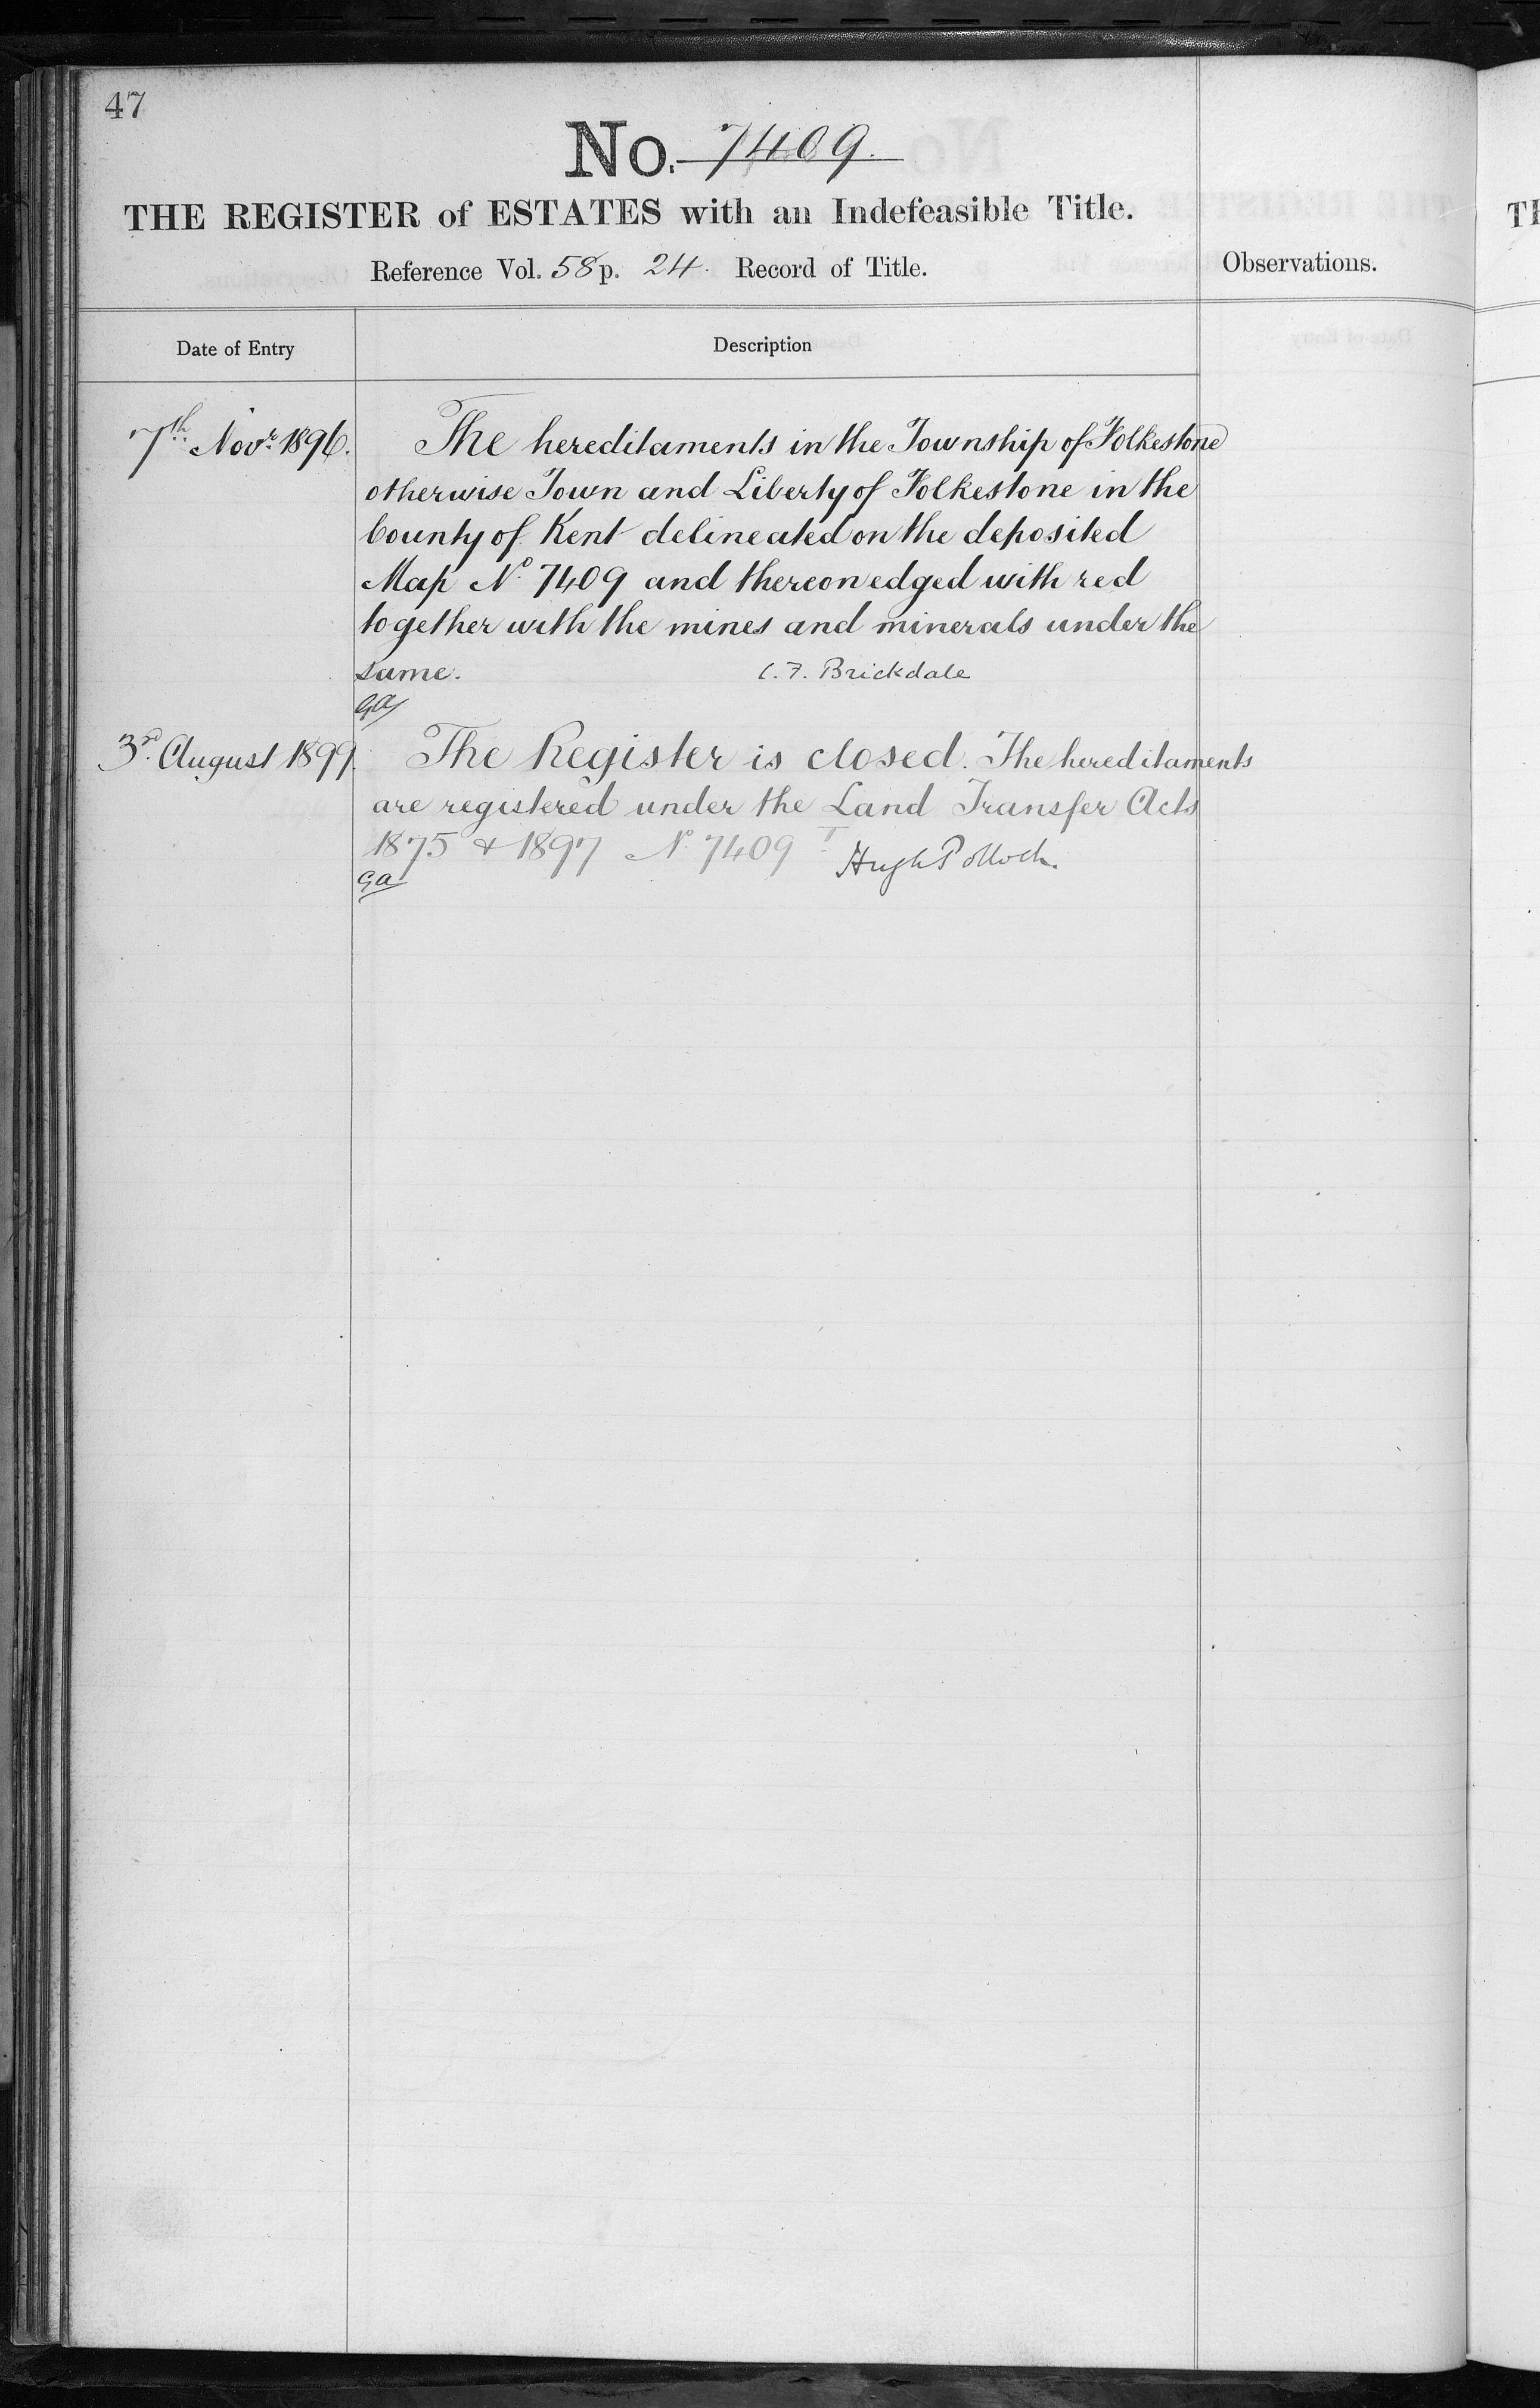 47
No. 7409.
THE REGISTER of ESTATES with an Indefeasible Title.
Reference Vol. 58 p. 24. Record of Title.
Observations.
Date of Entry
Description
7th Novr. 1896.
The hereditaments in the Township of Folkestone
otherwise Town and Liberty of Folkestone in the
County of Kent delineated on the deposited
Map No. 7409 and thereon edged with red
together with the mines and minerals under the
same.
C. F. Brickdale
GA
3rd. August 1899.
The Register is closed. The hereditaments
are registered under the Land Transfer Acts
1875 & 1897 No. 7409 I
Hugh Pollock.
GA